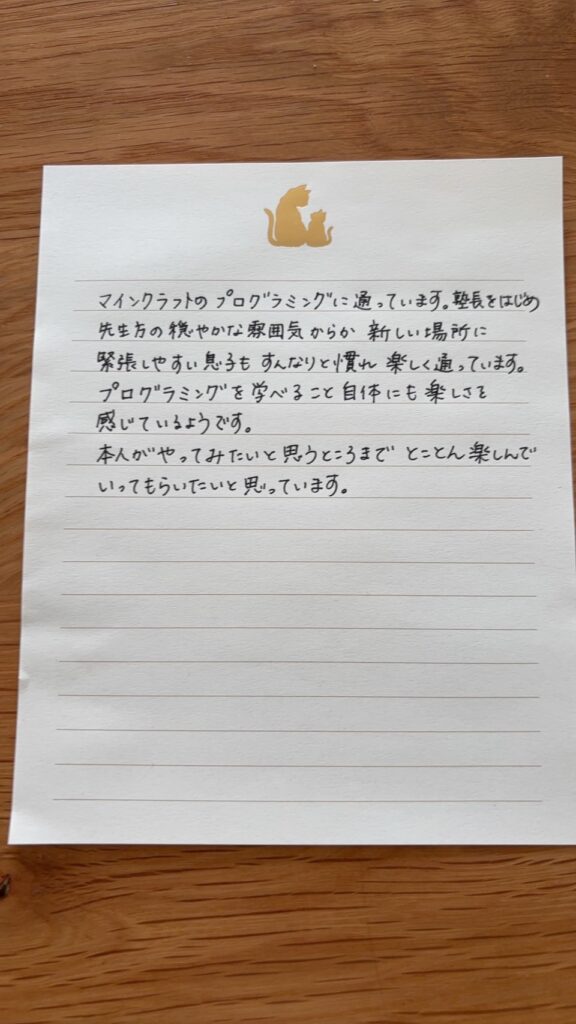 マインクラフトのプログラミングに通っています。塾長をはじめ
先生方の穏やかな雰囲気からか 新しい場所に
緊張しやすい息子も すんなりと慣れ 楽しく通っています。
プログラミングを学べること自体にも楽しさを
感じているようです。
本人がやってみたいと思うところまで とことん楽しんで
いってもらいたいと思っています。